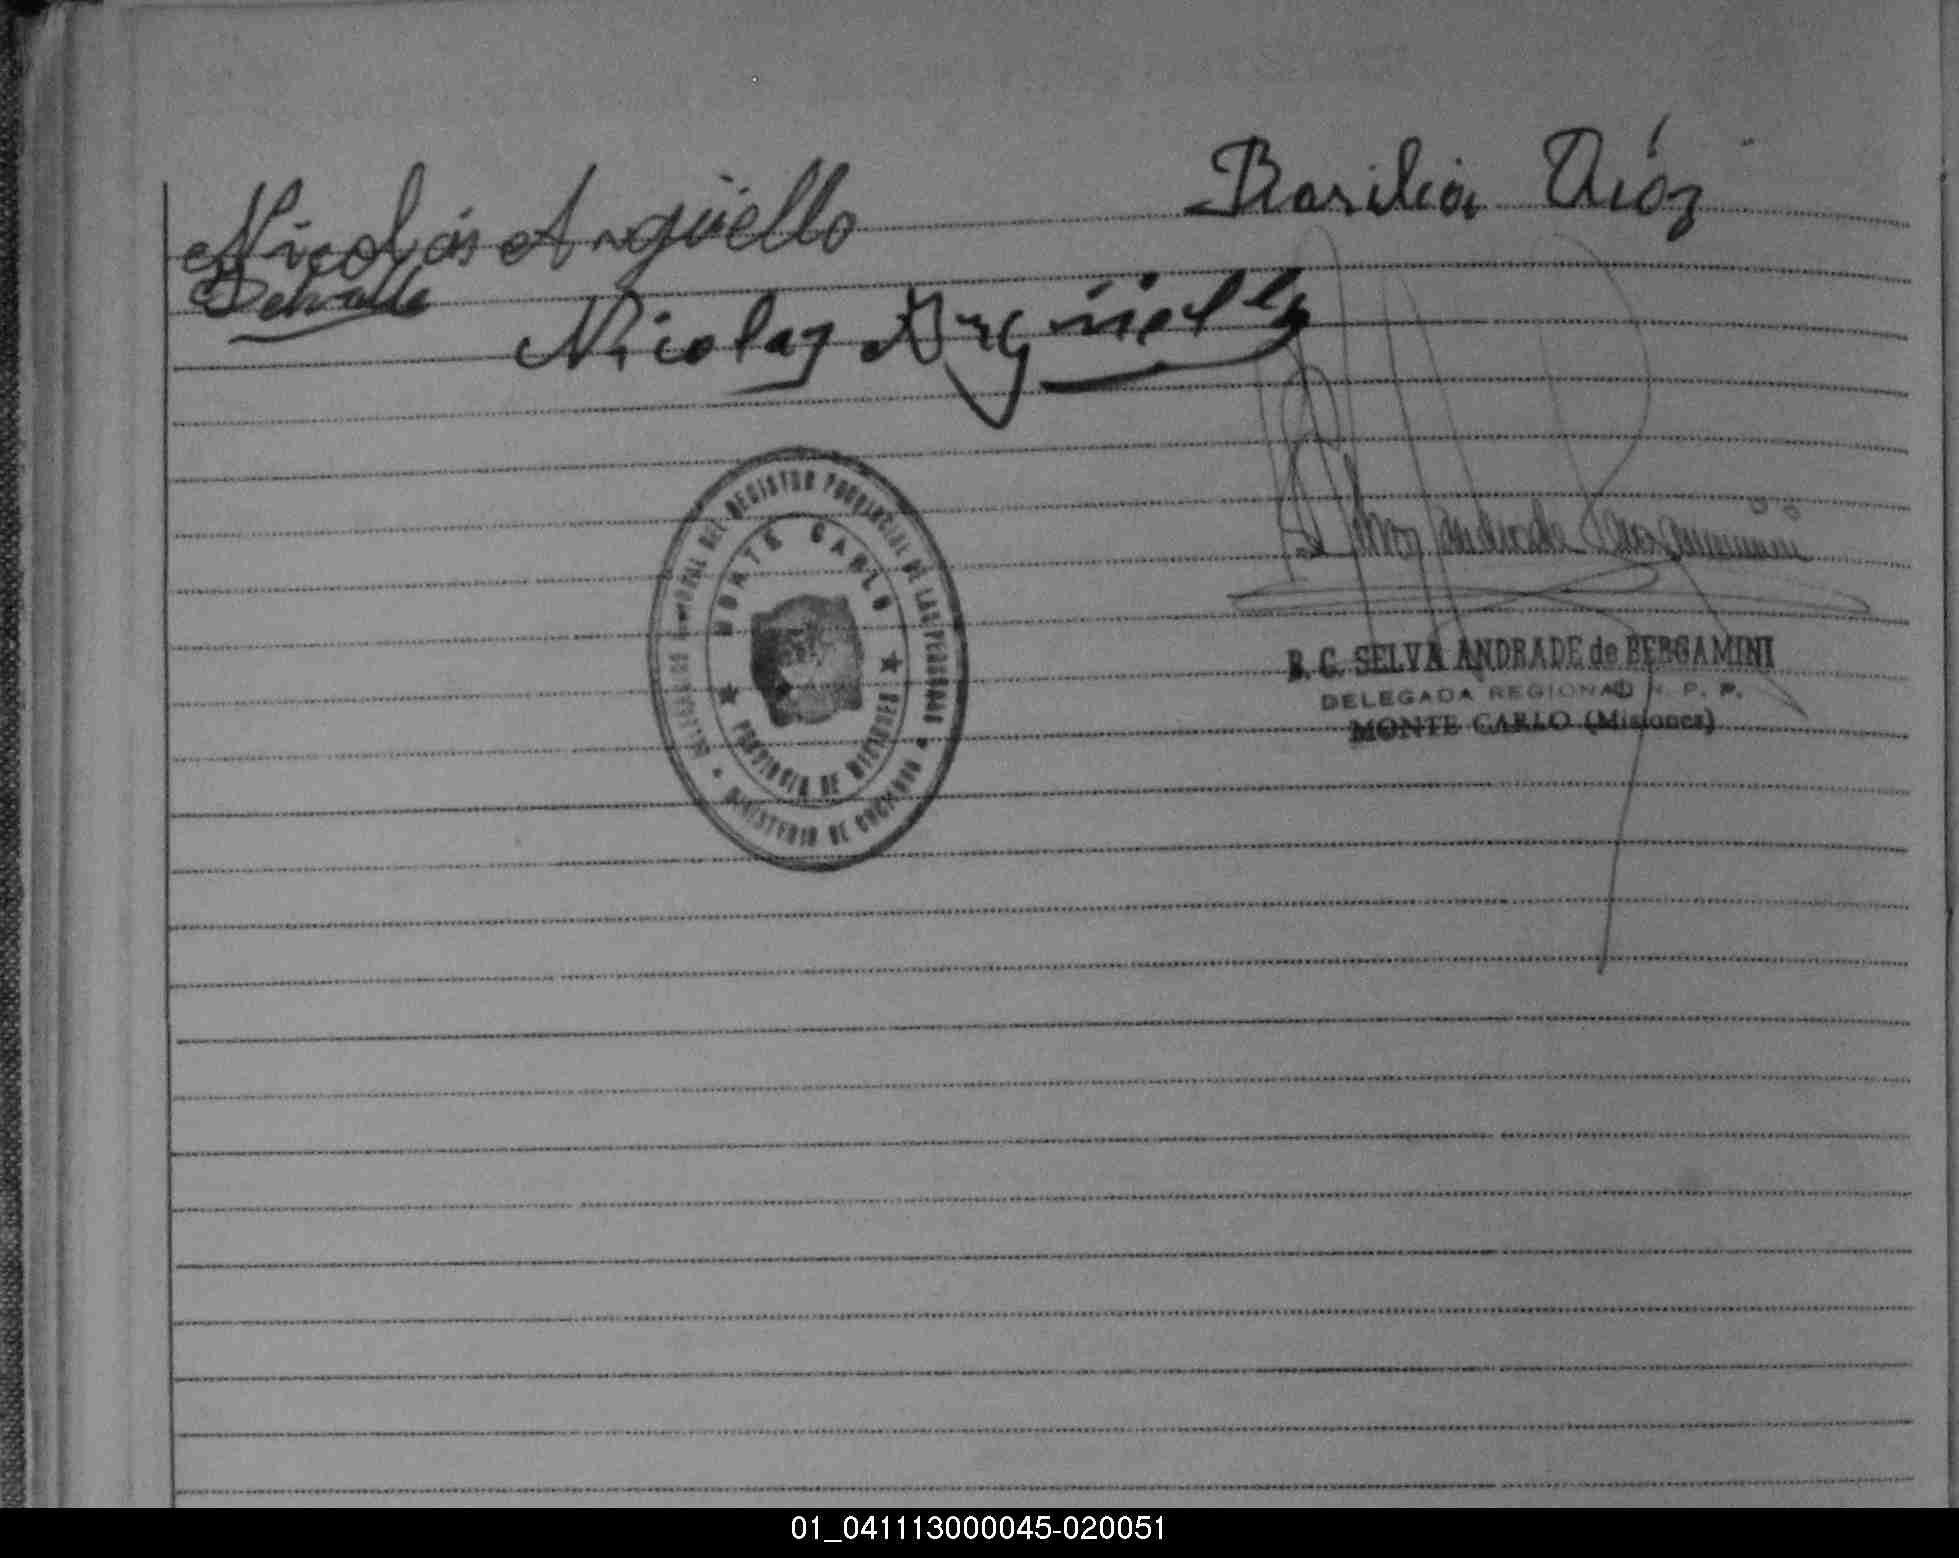 Nicolás Argüello Basilia Dióz
Delvalle
Nicolaz Argüello
DEL REGISTRO PROVINCIAL DE LAS PERSONAS
MONTE CARLO
PROVINCIA DE MISIONES
MINISTERIO DE GOBIERNO
Selva Andrade Bergamini
R. C. SELVA ANDRADE de BERGAMINI
DELEGADA REGIONAL R. P. P.
MONTE CARLO (Misiones)
01_041113000045-020051